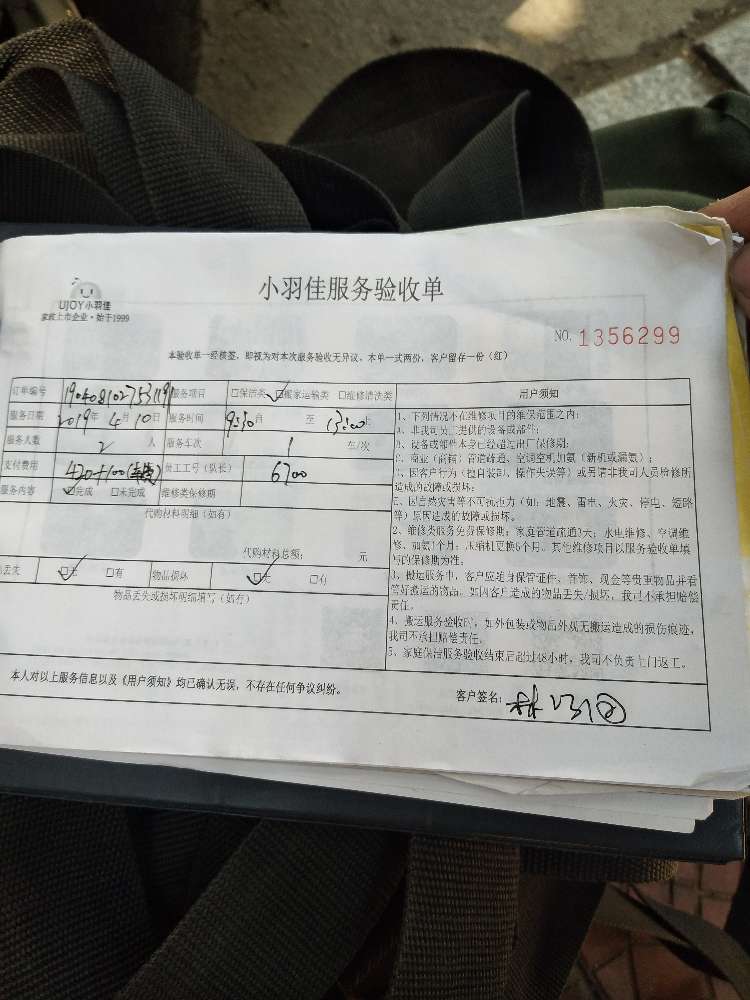 UJOY小羽佳
家政上市企业·始于1999
小羽佳服务验收单
NO. 1356299
本验收单一经核签，即视为对本次服务验收无异议。本单一式两份，客户留存一份（红）
订单编号 服务项目 □保洁类 ☑搬家运输类 □维修清洗类
服务日期 2019年 4月 10日 服务时间 9:30 自 至 13:00 止
服务人数 2 人 服务车次 1 车/次
支付费用 420+100 员工工号（队长） 6700
服务内容 ☑完成 □未完成 维修类保修期
代购材料明细（如有）
代购材料总额： 元
丢失 ☑无 □有 物品损坏 ☑无 □有
物品丢失或损坏明细填写（如有）
用户须知
1、下列情况不在维修项目的维保范围之内：
A、非我司员工提供的设备或部件；
B、设备或部件本身已经超过出厂保修期；
C、商业（商铺）管道疏通、空调空机加氨（新机或漏氨）；
D、因客户行为（擅自装卸、操作失误等）或另请非我司人员检修所
造成的故障或损坏；
E、因自然灾害等不可抗拒力（如：地震、雷电、火灾、停电、短路
等）原因造成的故障或损坏。
2、维修类服务免费保修期：家庭管道疏通3天；水电维修、空调维
修、加氨1个月；压缩机更换6个月。其他维修项目以服务验收单填
写的保修期为准。
3、搬运服务中，客户应随身保管证件、首饰、现金等贵重物品并看
管好搬运的物品。如因客户造成的物品丢失/损坏，我司不承担赔偿
责任。
4、搬运服务验收时，如外包装或物品外观无搬运造成的损伤痕迹，
我司不承担赔偿责任。
5、家庭保洁服务验收结束后超过48小时，我司不负责上门返工。
本人对以上服务信息以及《用户须知》均已确认无误，不存在任何争议纠纷。
客户签名：